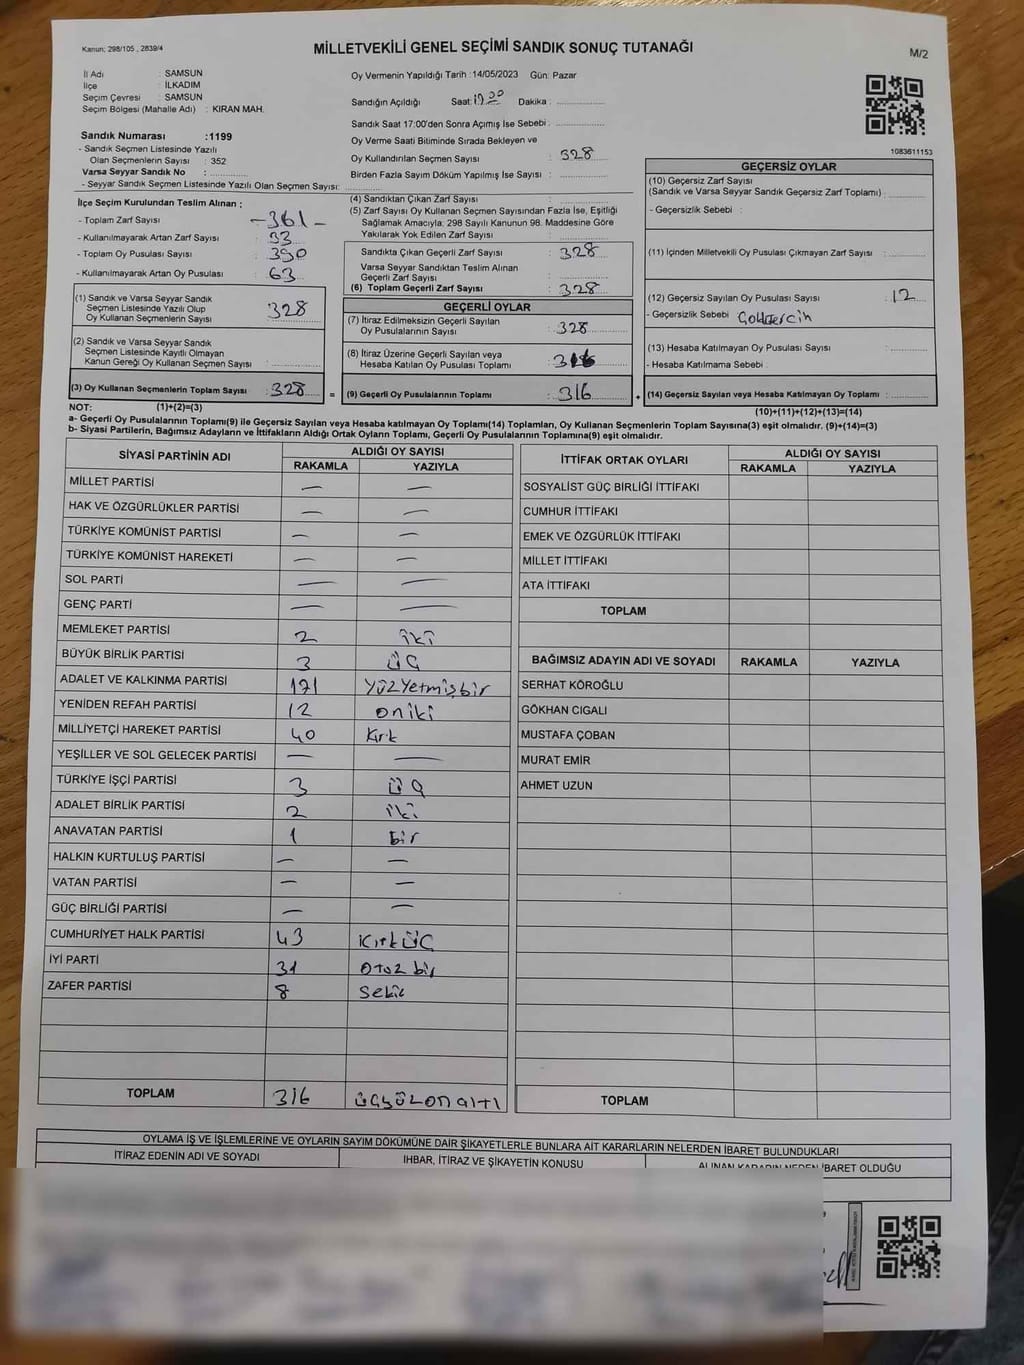 Kanun; 298/105 , 2839/4
MİLLETVEKİLİ GENEL SEÇİMİ SANDIK SONUÇ TUTANAĞI
M/2
İl Adı : SAMSUN
İlçe : İLKADIM
Seçim Çevresi : SAMSUN
Seçim Bölgesi (Mahalle Adı) : KIRAN MAH.
Sandık Numarası :1199
- Sandık Seçmen Listesinde Yazılı
Olan Seçmenlerin Sayısı : 352
Varsa Seyyar Sandık No :
- Seyyar Sandık Seçmen Listesinde Yazılı Olan Seçmen Sayısı:
Oy Vermenin Yapıldığı Tarih :14/05/2023 Gün: Pazar
Sandığın Açıldığı Saat: Dakika :
Sandık Saat 17:00'den Sonra Açımış İse Sebebi :
Oy Verme Saati Bitiminde Sırada Bekleyen ve
Oy Kullandırılan Seçmen Sayısı : 328
Birden Fazla Sayım Döküm Yapılmış İse Sayısı :
1083611153
İlçe Seçim Kurulundan Teslim Alınan :
- Toplam Zarf Sayısı -361-
- Kullanılmayarak Artan Zarf Sayısı : 33
- Toplam Oy Pusulası Sayısı : 390
- Kullanılmayarak Artan Oy Pusulası : 63
(1) Sandık ve Varsa Seyyar Sandık
Seçmen Listesinde Yazılı Olup
Oy Kullanan Seçmenlerin Sayısı : 328
(2) Sandık ve Varsa Seyyar Sandık
Seçmen Listesinde Kayıtlı Olmayan
Kanun Gereği Oy Kullanan Seçmen Sayısı :
(3) Oy Kullanan Seçmenlerin Toplam Sayısı : 328 =
(4) Sandıktan Çıkan Zarf Sayısı :
(5) Zarf Sayısı Oy Kullanan Seçmen Sayısından Fazla İse, Eşitliği
Sağlamak Amacıyla; 298 Sayılı Kanunun 98. Maddesine Göre
Yakılarak Yok Edilen Zarf Sayısı :
Sandıkta Çıkan Geçerli Zarf Sayısı : 328
Varsa Seyyar Sandıktan Teslim Alınan
Geçerli Zarf Sayısı :
(6) Toplam Geçerli Zarf Sayısı : 328
GEÇERLİ OYLAR
(7) İtiraz Edilmeksizin Geçerli Sayılan
Oy Pusulalarının Sayısı : 328
(8) İtiraz Üzerine Geçerli Sayılan veya
Hesaba Katılan Oy Pusulası Toplamı : 316
(9) Geçerli Oy Pusulalarının Toplamı : 316 +
GEÇERSİZ OYLAR
(10) Geçersiz Zarf Sayısı
(Sandık ve Varsa Seyyar Sandık Geçersiz Zarf Toplamı) :
- Geçersizlik Sebebi :
(11) İçinden Milletvekili Oy Pusulası Çıkmayan Zarf Sayısı :
(12) Geçersiz Sayılan Oy Pusulası Sayısı : 12
- Geçersizlik Sebebi :
(13) Hesaba Katılmayan Oy Pusulası Sayısı :
- Hesaba Katılmama Sebebi :
(14) Geçersiz Sayılan veya Hesaba Katılmayan Oy Toplamı :
NOT: (1)+(2)=(3) (10)+(11)+(12)+(13)=(14)
a- Geçerli Oy Pusulalarının Toplamı(9) ile Geçersiz Sayılan veya Hesaba katılmayan Oy Toplamı(14) Toplamları, Oy Kullanan Seçmenlerin Toplam Sayısına(3) eşit olmalıdır. (9)+(14)=(3)
b- Siyasi Partilerin, Bağımsız Adayların ve İttifakların Aldığı Ortak Oyların Toplamı, Geçerli Oy Pusulalarının Toplamına(9) eşit olmalıdır.
SİYASİ PARTİNİN ADI ALDIĞI OY SAYISI
RAKAMLA YAZIYLA
MİLLET PARTİSİ — —
HAK VE ÖZGÜRLÜKLER PARTİSİ — —
TÜRKİYE KOMÜNİST PARTİSİ — —
TÜRKİYE KOMÜNİST HAREKETİ — —
SOL PARTİ — —
GENÇ PARTİ — —
MEMLEKET PARTİSİ 2 iki
BÜYÜK BİRLİK PARTİSİ 3 üç
ADALET VE KALKINMA PARTİSİ 171 yüzyetmişbir
YENİDEN REFAH PARTİSİ 12 oniki
MİLLİYETÇİ HAREKET PARTİSİ 40 Kırk
YEŞİLLER VE SOL GELECEK PARTİSİ — —
TÜRKİYE İŞÇİ PARTİSİ 3 üç
ADALET BİRLİK PARTİSİ 2 iki
ANAVATAN PARTİSİ 1 bir
HALKIN KURTULUŞ PARTİSİ — —
VATAN PARTİSİ — —
GÜÇ BİRLİĞİ PARTİSİ — —
CUMHURİYET HALK PARTİSİ 43 Kırküç
İYİ PARTİ 31 otuz bir
ZAFER PARTİSİ 8 Sekiz
TOPLAM 316 üçyüzonaltı
İTTİFAK ORTAK OYLARI ALDIĞI OY SAYISI
RAKAMLA YAZIYLA
SOSYALİST GÜÇ BİRLİĞİ İTTİFAKI
CUMHUR İTTİFAKI
EMEK VE ÖZGÜRLÜK İTTİFAKI
MİLLET İTTİFAKI
ATA İTTİFAKI
TOPLAM
BAĞIMSIZ ADAYIN ADI VE SOYADI RAKAMLA YAZIYLA
SERHAT KÖROĞLU
GÖKHAN CIGALI
MUSTAFA ÇOBAN
MURAT EMİR
AHMET UZUN
TOPLAM
OYLAMA İŞ VE İŞLEMLERİNE VE OYLARIN SAYIM DÖKÜMÜNE DAİR ŞİKAYETLERLE BUNLARA AİT KARARLARIN NELERDEN İBARET BULUNDUKLARI
İTİRAZ EDENİN ADI VE SOYADI İHBAR, İTİRAZ VE ŞİKAYETİN KONUSU ALINAN KARARIN NEDEN İBARET OLDUĞU